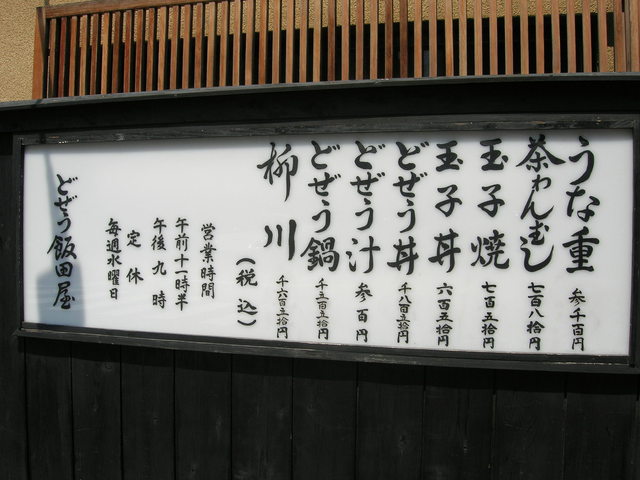 うな重 参千百円
茶わんむし 七百八拾円
玉子焼 七百五拾円
玉子丼 六百五拾円
どぜう丼 千八百五拾円
どぜう汁 参百円
どぜう鍋 千三百五拾円
柳川 千六百五拾円
(税込)
営業時間
午前十一時半
午後九時
定休
毎週水曜日
どぜう飯田屋